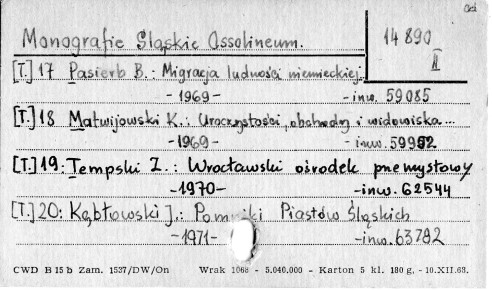 Monografie Śląskie Ossolineum.
14 890
II
[T.] 17 Pasierb B.: Migracja ludności niemieckiej.
-1969- -inw. 59085
[T.] 18 Matwijowski K.: Uroczystości, obchody i widowiska...
-1969- -inw. 59952
[T.] 19: Tempski Z.: Wrocławski ośrodek przemysłowy
-1970- -inw. 62544
[T.] 20: Kębłowski J.: Pomniki Piastów Śląskich
-1971- -inw. 63782
CWD B 15 b Zam. 1537/DW/On Wrak 1068 - 5.040.000 - Karton 5 kl. 180 g. - 10.XII.63.